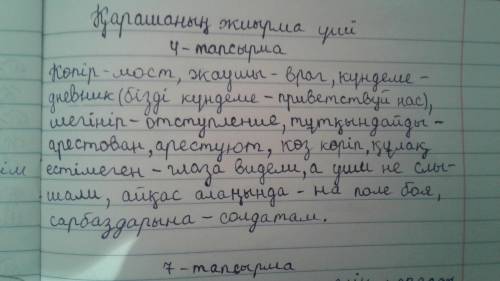 Қарашаның жиырма үші
4-тапсырма
Көпір-мост, жаушы-враг, күндеме-
дневник (бізді күндеме-приветствуй нас),
шегініп-отступление, тұтқындайды-
арестован, арестуют, көз көріп, құлақ
естімеген-глаза видели, а уши не слы-
шали, айқас алаңында-на поле боя,
сарбаздарына-солдатам.
7-тапсырма
ім